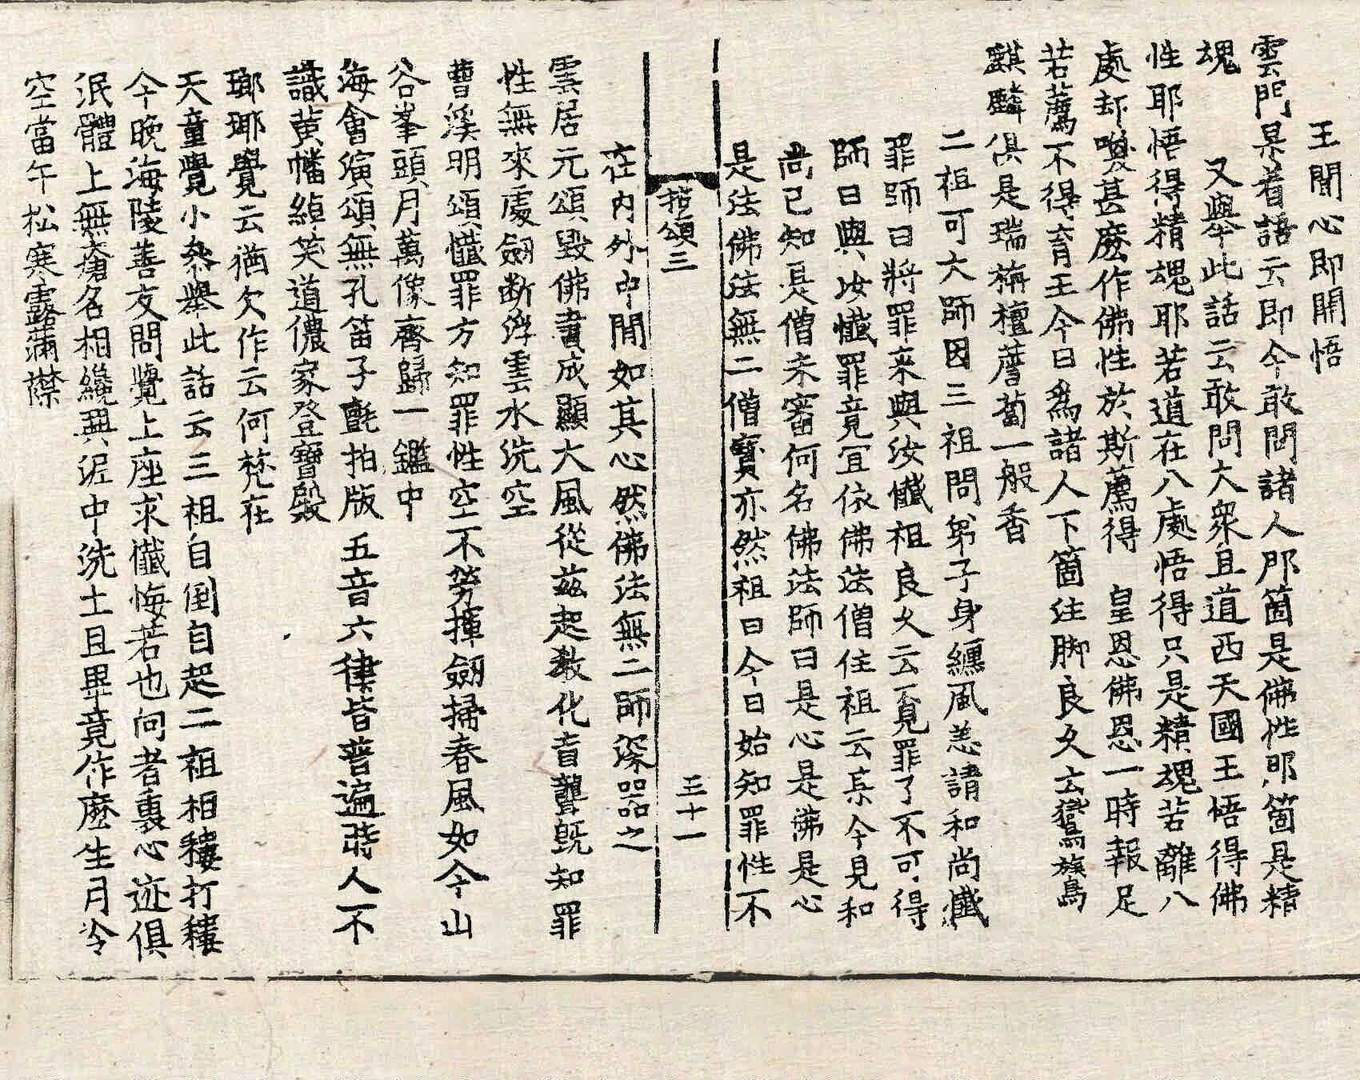 王聞心即開悟
雲門杲着語云即今敢問諸人那箇是佛性那箇是精
魂　又舉此話云敢問大衆且道西天國王悟得佛
性耶悟得精魂耶若道在八處悟得只是精魂若離八
處却喚甚麽作佛性於斯薦得　皇恩佛恩一時報足
若薦不得育王今日爲諸人下箇注脚良久云鸑鷟
麒麟俱是瑞栴檀薝蔔一般香
二祖可大師因三祖問弟子身纏風恙請和尚懺
罪師曰將罪來與汝懺祖良久云覓罪了不可得
師曰與汝懺罪竟宜依佛法僧住祖云某今見和
尚已知是僧未審何名佛法師曰是心是佛是心
是法佛法無二僧寶亦然祖曰今日始知罪性不
拈頌三
三十一
在內外中間如其心然佛法無二師深器之
雲居元頌毀佛書成顯大風從茲起教化盲聾旣知罪
性無來處劔斷浮雲水洗空
曹溪明頌懺罪方知罪性空不勞揮劔掃春風如今山
谷峯頭月萬像齊歸一鑑中
海會演頌無孔笛子氈拍版五音六律皆普遍時人不
識黃幡綽笑道儂家登寶殿
瑯瑘覺云猶欠作云何梵在
天童覺小叅舉此話云三祖自倒自起二祖相穜打穜
今晩海陵善友問覺上座求懺悔若也向者裏心迹俱
泯體上無瘡名相纔興泥中洗土且畢竟作麽生月冷
空當午松寒露滿襟